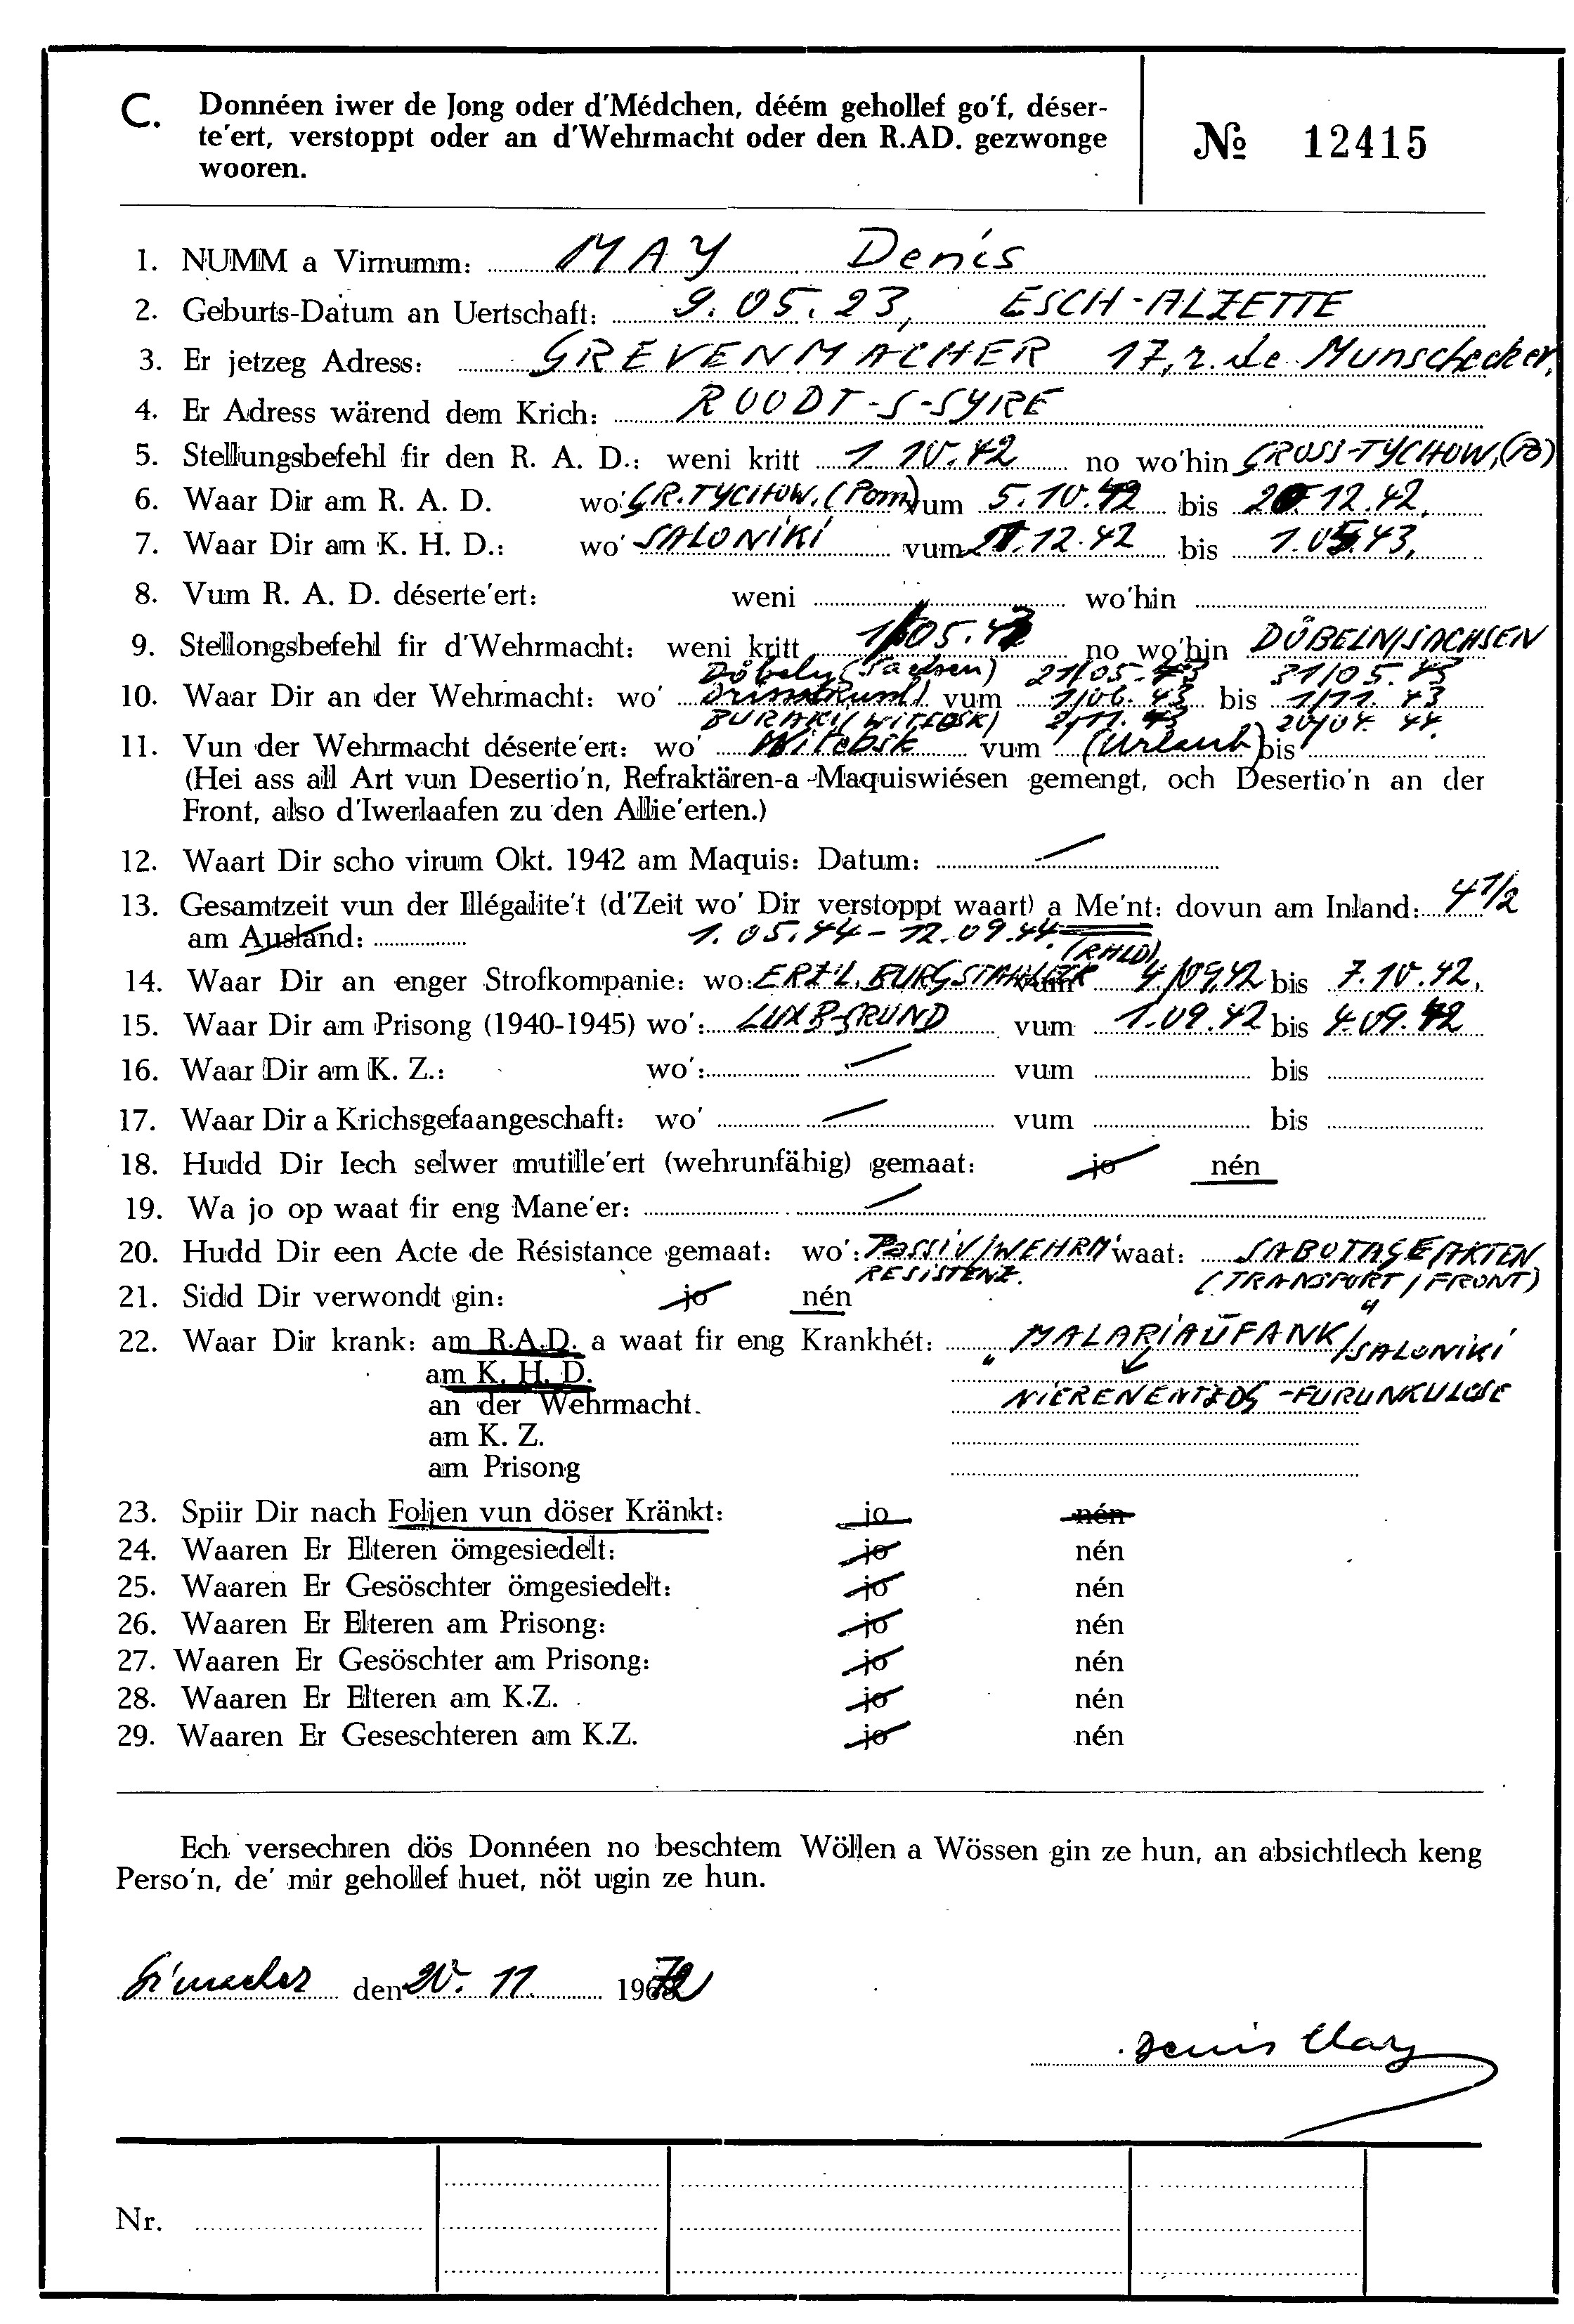 C. Donnéen iwer de Jong oder d'Médchen, déém gehollef go'f, déser-
te'ert, verstoppt oder an d'Wehrmacht oder den R.AD. gezwonge
wooren.
№ 12415
1. NUMM a Virnumm: MAY Denis
2. Geburts-Datum an Uertschaft: 9.05.23, ESCH-ALZETTE
3. Er jetzeg Adress: GREVENMACHER 17, r. de Munschecker,
4. Er Adress wärend dem Krich: ROODT-S-SYRE
5. Stellungsbefehl fir den R. A. D.: weni kritt 1.10.42 no wo'hin GROSS-TYCHOW,
6. Waar Dir am R. A. D. wo' GR.TYCHOW.(Pom) vum 5.10.42 bis 20 12.42,
7. Waar Dir am K. H. D.: wo' SALONIKI vum 21.12.42 bis 1.05.43,
8. Vum R. A. D. déserte'ert: weni wo'hin
9. Stellongsbefehl fir d'Wehrmacht: weni kritt 1/05.43 no wo'hin DÖBELN/SACHSEN
Döbeln (Sachsen) 21/05.43 31/05.43
10. Waar Dir an der Wehrmacht: wo' vum 1/06.43 bis 1/11.43
BURAKI/WITEBSK) 2/11.43 20/04.44.
11. Vun der Wehrmacht déserte'ert: wo' Witebsk vum (Urlaub) bis
(Hei ass all Art vun Desertio'n, Refraktären-a -Maquiswiésen gemengt, och Desertio'n an der
Front, also d'Iwerlaafen zu den Allie'erten.)
12. Waart Dir scho virum Okt. 1942 am Maquis: Datum:
13. Gesamtzeit vun der Illégalite't (d'Zeit wo' Dir verstoppt waart) a Me'nt: dovun am Inland: 4 1/2
am Ausland: 1.05.44 - 12.09.44.
(RHLD)
14. Waar Dir an enger Strofkompanie: wo: ERZ'L. BURG STAHLECK vum 4/09.42 bis 7.10.42,
15. Waar Dir am Prisong (1940-1945) wo': LUXB-GRUND vum 1.09.42 bis 4.09.42
16. Waar Dir am K. Z.: wo': vum bis
17. Waar Dir a Krichsgefaangeschaft: wo' vum bis
18. Hudd Dir Iech selwer mutille'ert (wehrunfähig) gemaat: jo nén
19. Wa jo op waat fir eng Mane'er:
20. Hudd Dir een Acte de Résistance gemaat: wo': PASSIV/WEHRM' waat: SABOTAGEAKTEN
RESISTENZ. (TRANSPORT/FRONT)
21. Sidd Dir verwondt gin: jo nén
22. Waar Dir krank: am R.A.D. a waat fir eng Krankhét: MALARIA /SALONIKI
am K. H. D.
an der Wehrmacht. NIERENENTZDG-FURUNKULOSE
am K. Z.
am Prisong
23. Spiir Dir nach Foljen vun döser Kränkt: jo nén
24. Waaren Er Elteren ömgesiedelt: jo nén
25. Waaren Er Gesöschter ömgesiedelt: jo nén
26. Waaren Er Elteren am Prisong: jo nén
27. Waaren Er Gesöschter am Prisong: jo nén
28. Waaren Er Elteren am K.Z. jo nén
29. Waaren Er Geseschteren am K.Z. jo nén
Ech versechren dös Donnéen no beschtem Wöllen a Wössen gin ze hun, an absichtlech keng
Perso'n, de' mir gehollef huet, nöt ugin ze hun.
Gr'macher den 20. 11. 1972
Denis May
Nr.